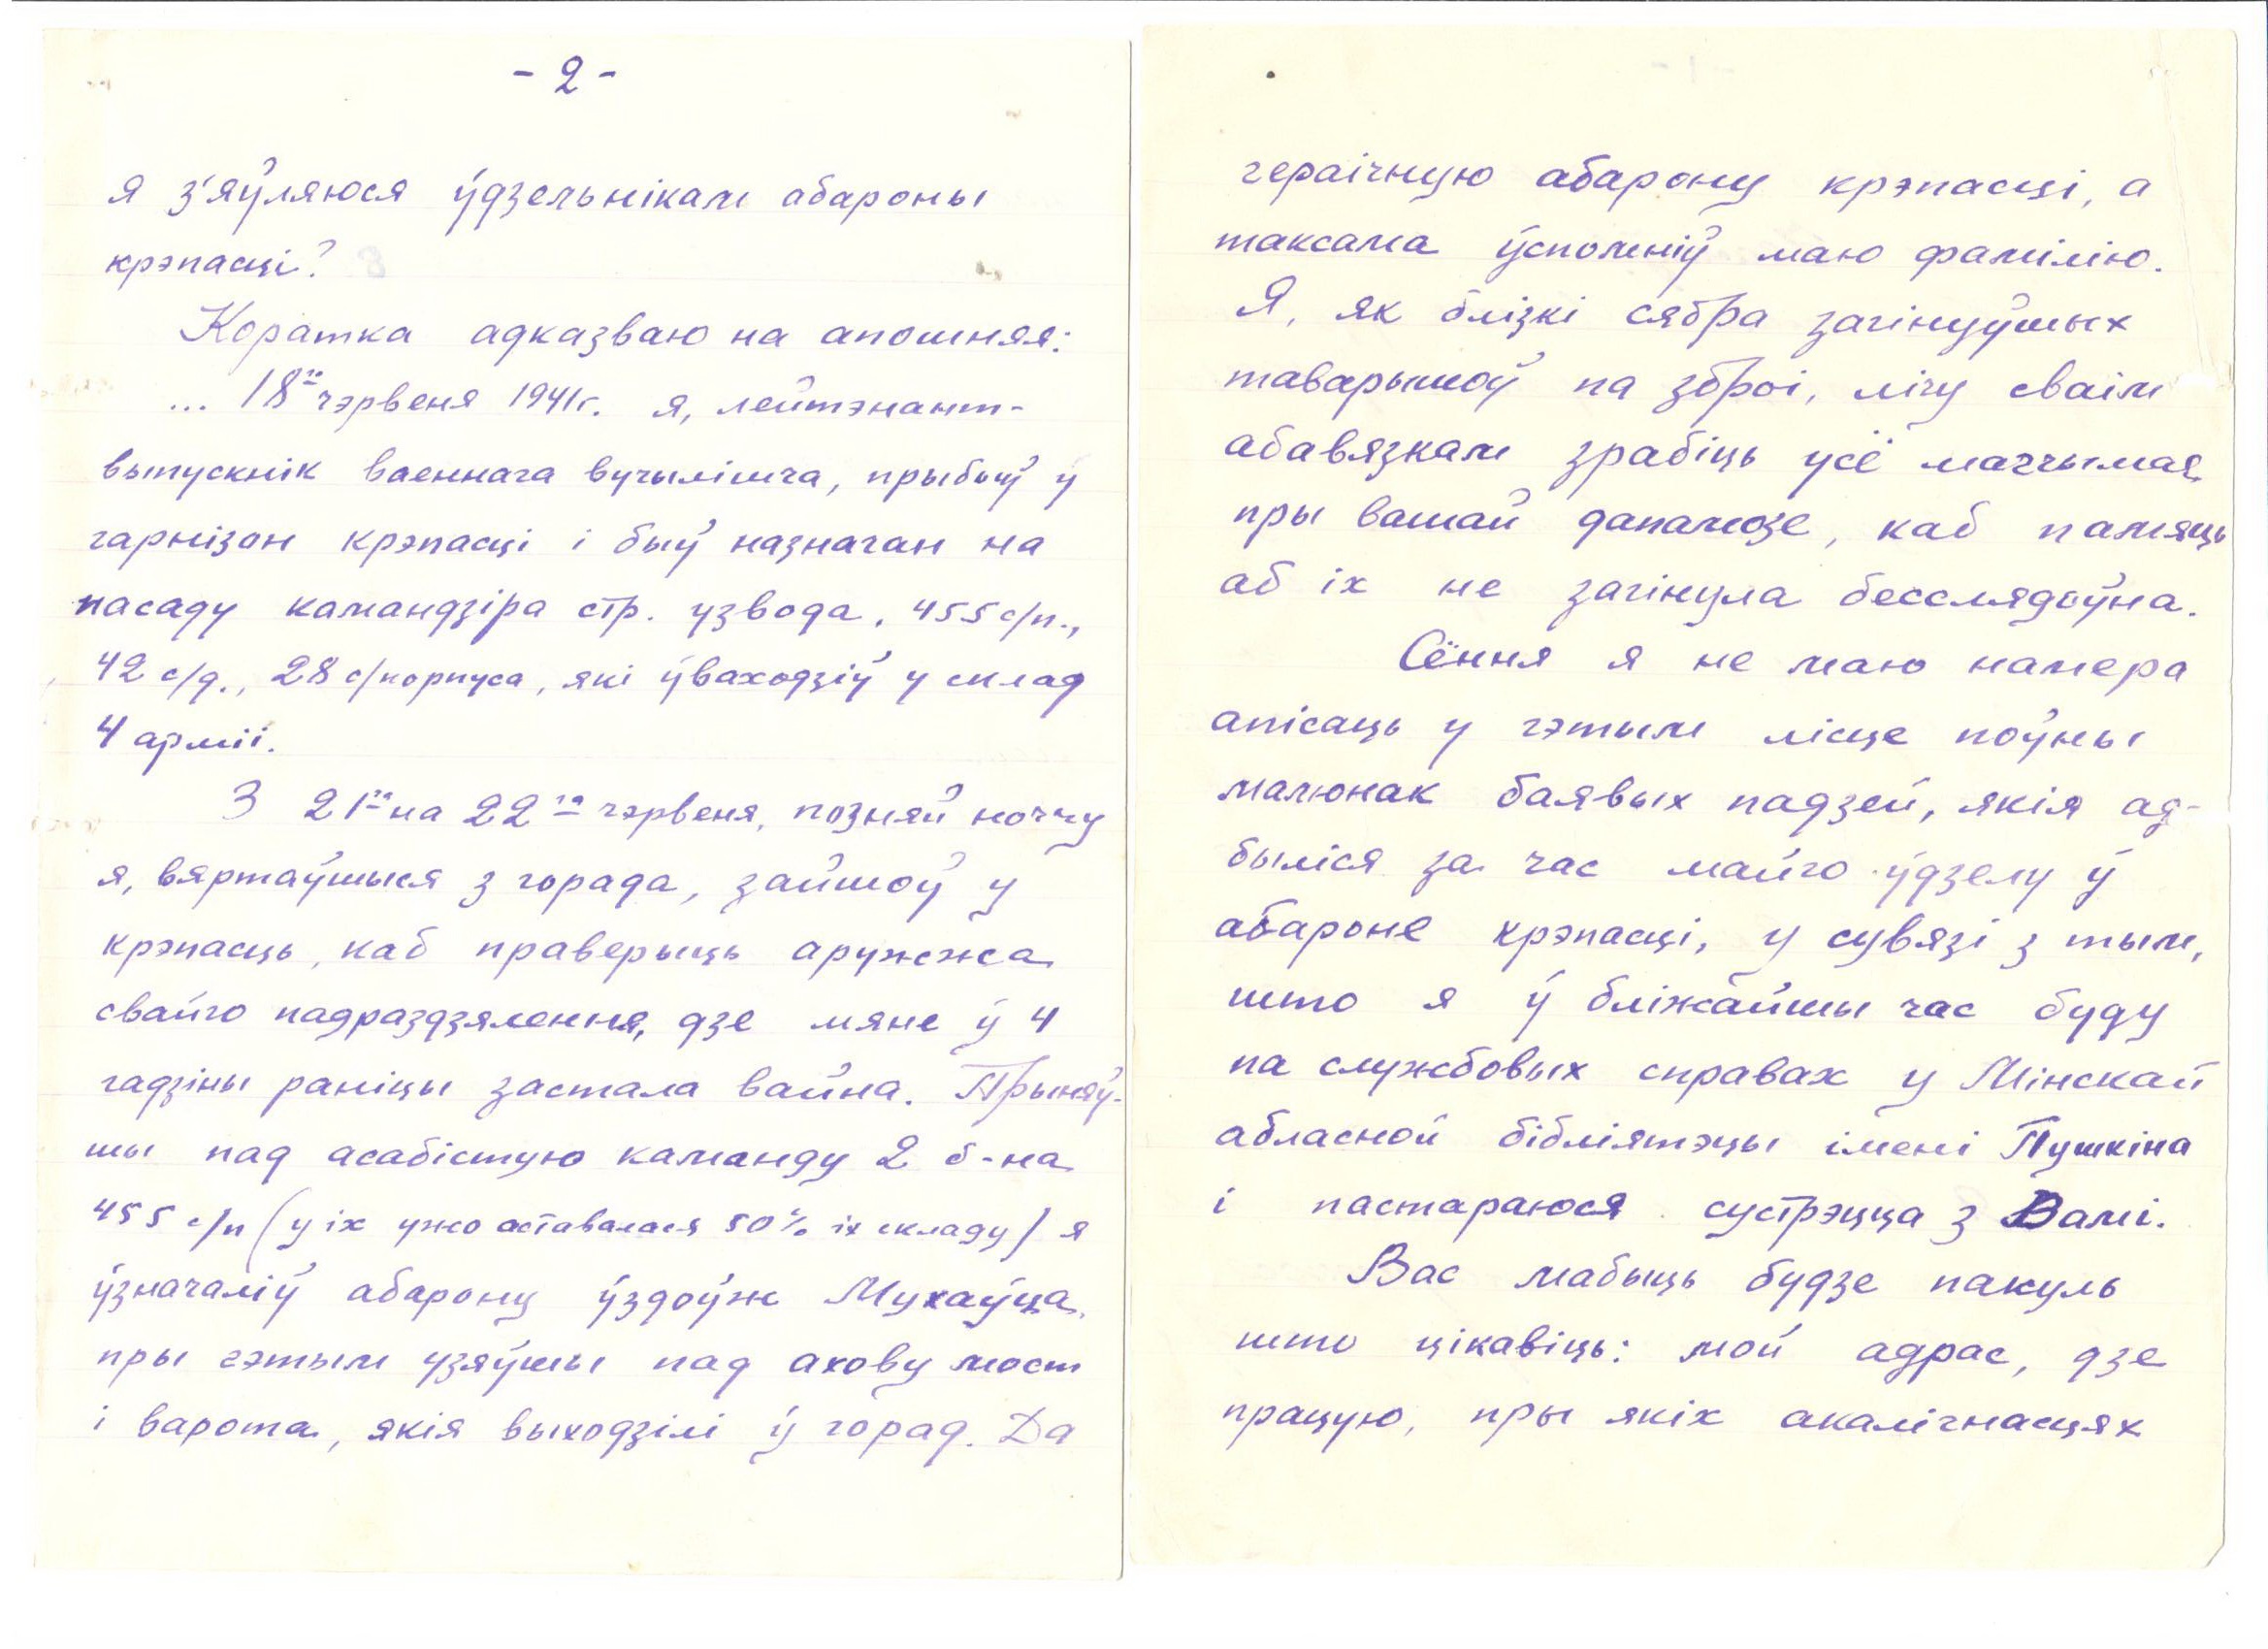 - 2 -
я з'яўляюся ўдзельнікам абароны
крэпасці?
Коратка адказваю на апошняя:
... 18го чэрвеня 1941г. я, лейтэнант-
выпускнік ваеннага вучылішча, прыбыў у
гарнізон крэпасці і быў назначан на
пасаду камандзіра стр. узвода, 455 с/п.,
42 с/д., 28 с/корпуса, які ўваходзіў у склад
4 арміі.
З 21го на 22го чэрвеня, позняй ноччу
я, вяртаўшыся з горада, зайшоў у
крэпасць, каб праверыць аружжа
свайго падраздзялення, дзе мяне ў 4
гадзіны раніцы застала вайна. Прыняў-
шы пад асабістую каманду 2 б-на
455 с/п (у іх ужо аставалася 50% іх складу) я
ўзначаліў абарону ўздоўж Мухаўца,
пры гэтым узяўшы пад ахову мост
і варота, якія выходзілі ў горад. Да
гераічную абарону крэпасці, а
таксама ўспомніў маю фамілію.
Я, як блізкі сябра загінуўшых
таварышоў па зброі, лічу сваім
абавязкам зрабіць усё магчымая
пры вашай дапамозе, каб памяць
аб іх не загінула бесслядоўна.
Сёння я не маю намера
апісаць у гэтым лісце поўны
малюнак баявых падзей, якія ад-
быліся за час майго ўдзелу ў
абароне крэпасці, у сувязі з тым,
што я ў бліжайшы час буду
па службовых справах у Мінскай
абласной бібліятэцы імені Пушкіна
і пастараюся сустрэцца з Вамі.
Вас мабыць будзе пакуль
што цікавіць: мой адрас, дзе
працую, пры якіх акалічнасцях